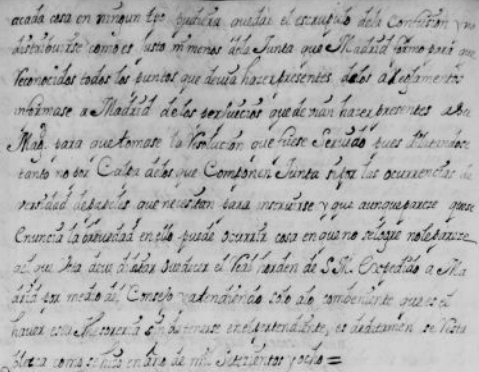 acada cosa en ningun tpo pudiera quedar el escrupulo dela Confusion y no
distribuirse como es justo ni menos dela Junta que Madrid formo para que
Reconocidos todos los puntos que devia hazer presentes delos a Reglamentos
informase a Madrid de los perjuicios que devian hazer presentes a Su
Magd. para que tomase la Resolucion que fuese Servido pues dilatandose
tanto no por Culpa delos que Componen Junta si por las ocurrencias de
versidad depapeles que necesitan para instruirse y que aunque pareze que se
Enuncia la en ello puede ocurrir cosa en que no selogre no le pareze
al que Una deve dilatar ovedecer el Real horden de S.M. Expedido a Ma
drid por medio del Consejo y atendiendo solo alo combeniente que es el
haver esta Thesoreria sin detenerse en el pertendiente, es dedictamen se Resta
blezca como se hizo en año de mil Setezientos y ocho =